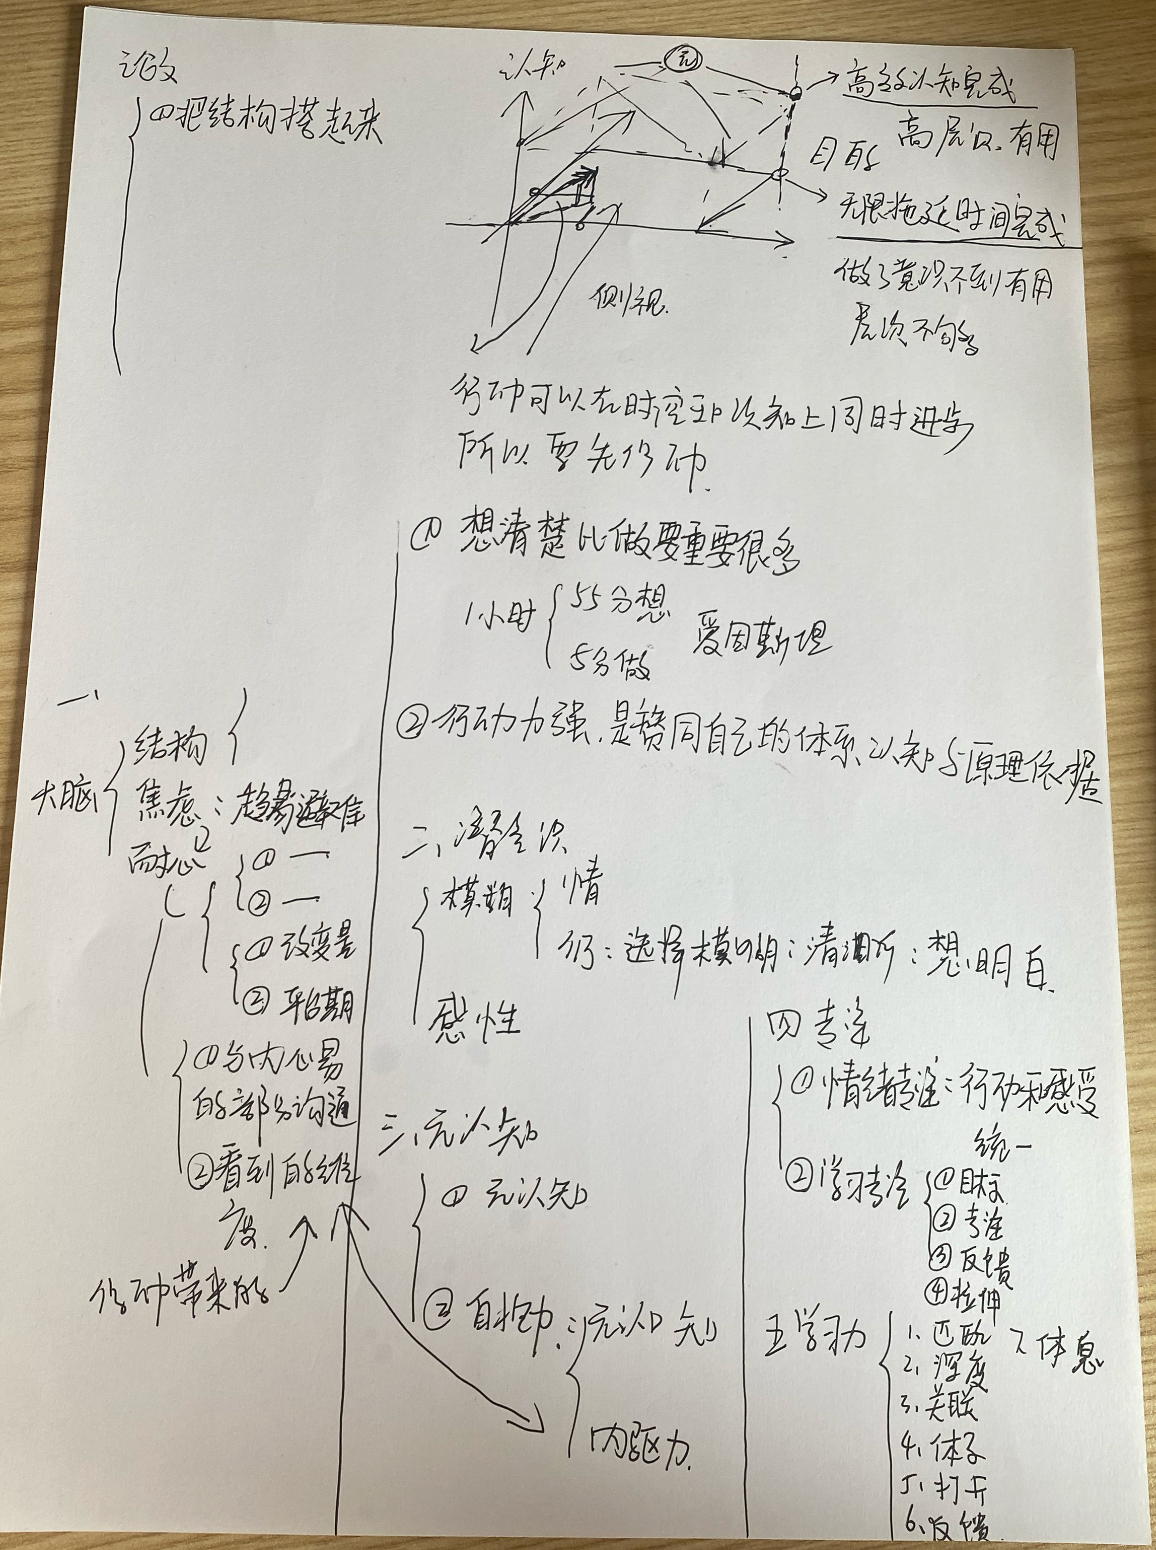 ①把结构搭起来
认知
元
高效认知完成
高层次、有用
目的
无限拖延时间完成
做了意识不到有用
层次不够
侧视
行动可以在时空和认知上同时进步
所以要先行动
① 想清楚比做要重要很多
1小时
55分想
5分做
爱因斯坦
②行动力强,是赞同自己的体系认知与原理依据
一、
大脑
结构
焦虑:趋易避难
耐心
①一
②一
①改变量
②平台期
①与内心易
的部分沟通
②看到的维
度
行动带来的
二、潜意识
模糊
情
行:选择模明:清晰:想明白
感性
三、元认知
① 元认知
② 自控力:元认知
内驱力
四 专注
①情绪专注:行动和感受
统一
②学习专注
①目标
②专注
③反馈
④拉伸
五 学习力
1. 匹配
2. 深度
3. 关联
4. 体系
5. 打开
6. 反馈
7. 休息